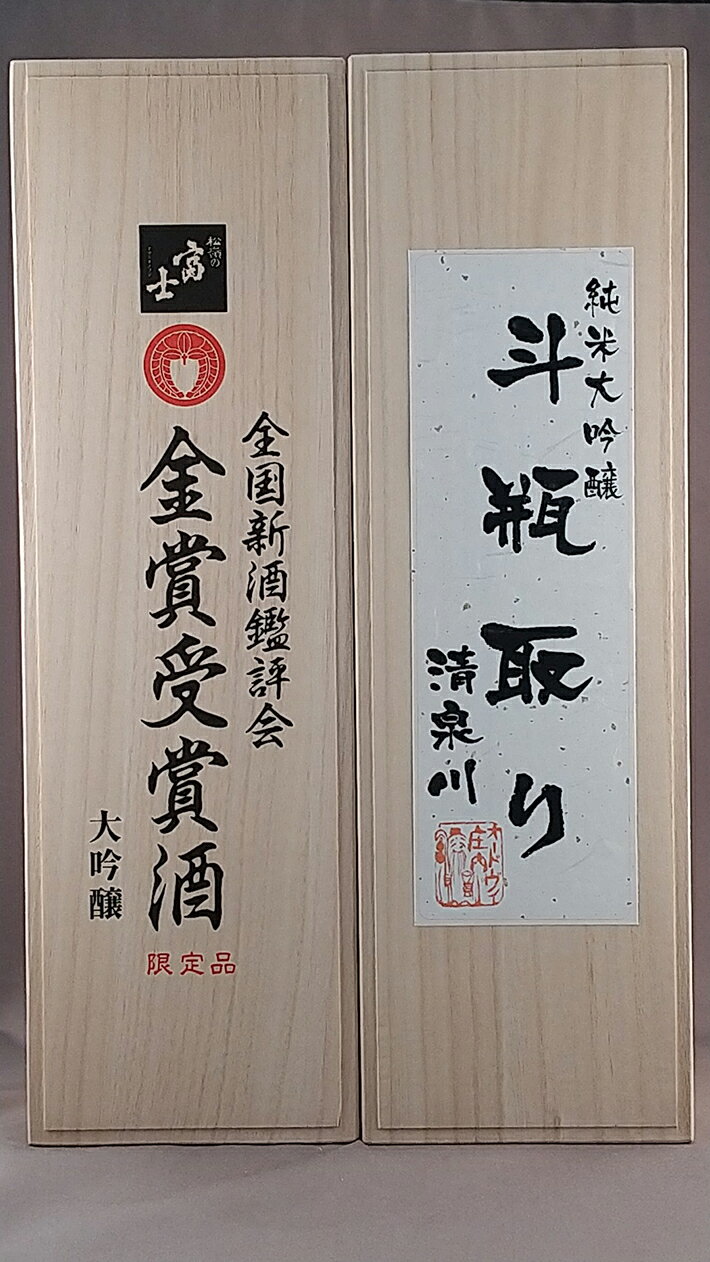 松嶺の
富士
全国新酒鑑評会
金賞受賞酒
大吟醸
限定品
純米大吟醸
斗瓶取り
清泉川
オードヴィ
庄内